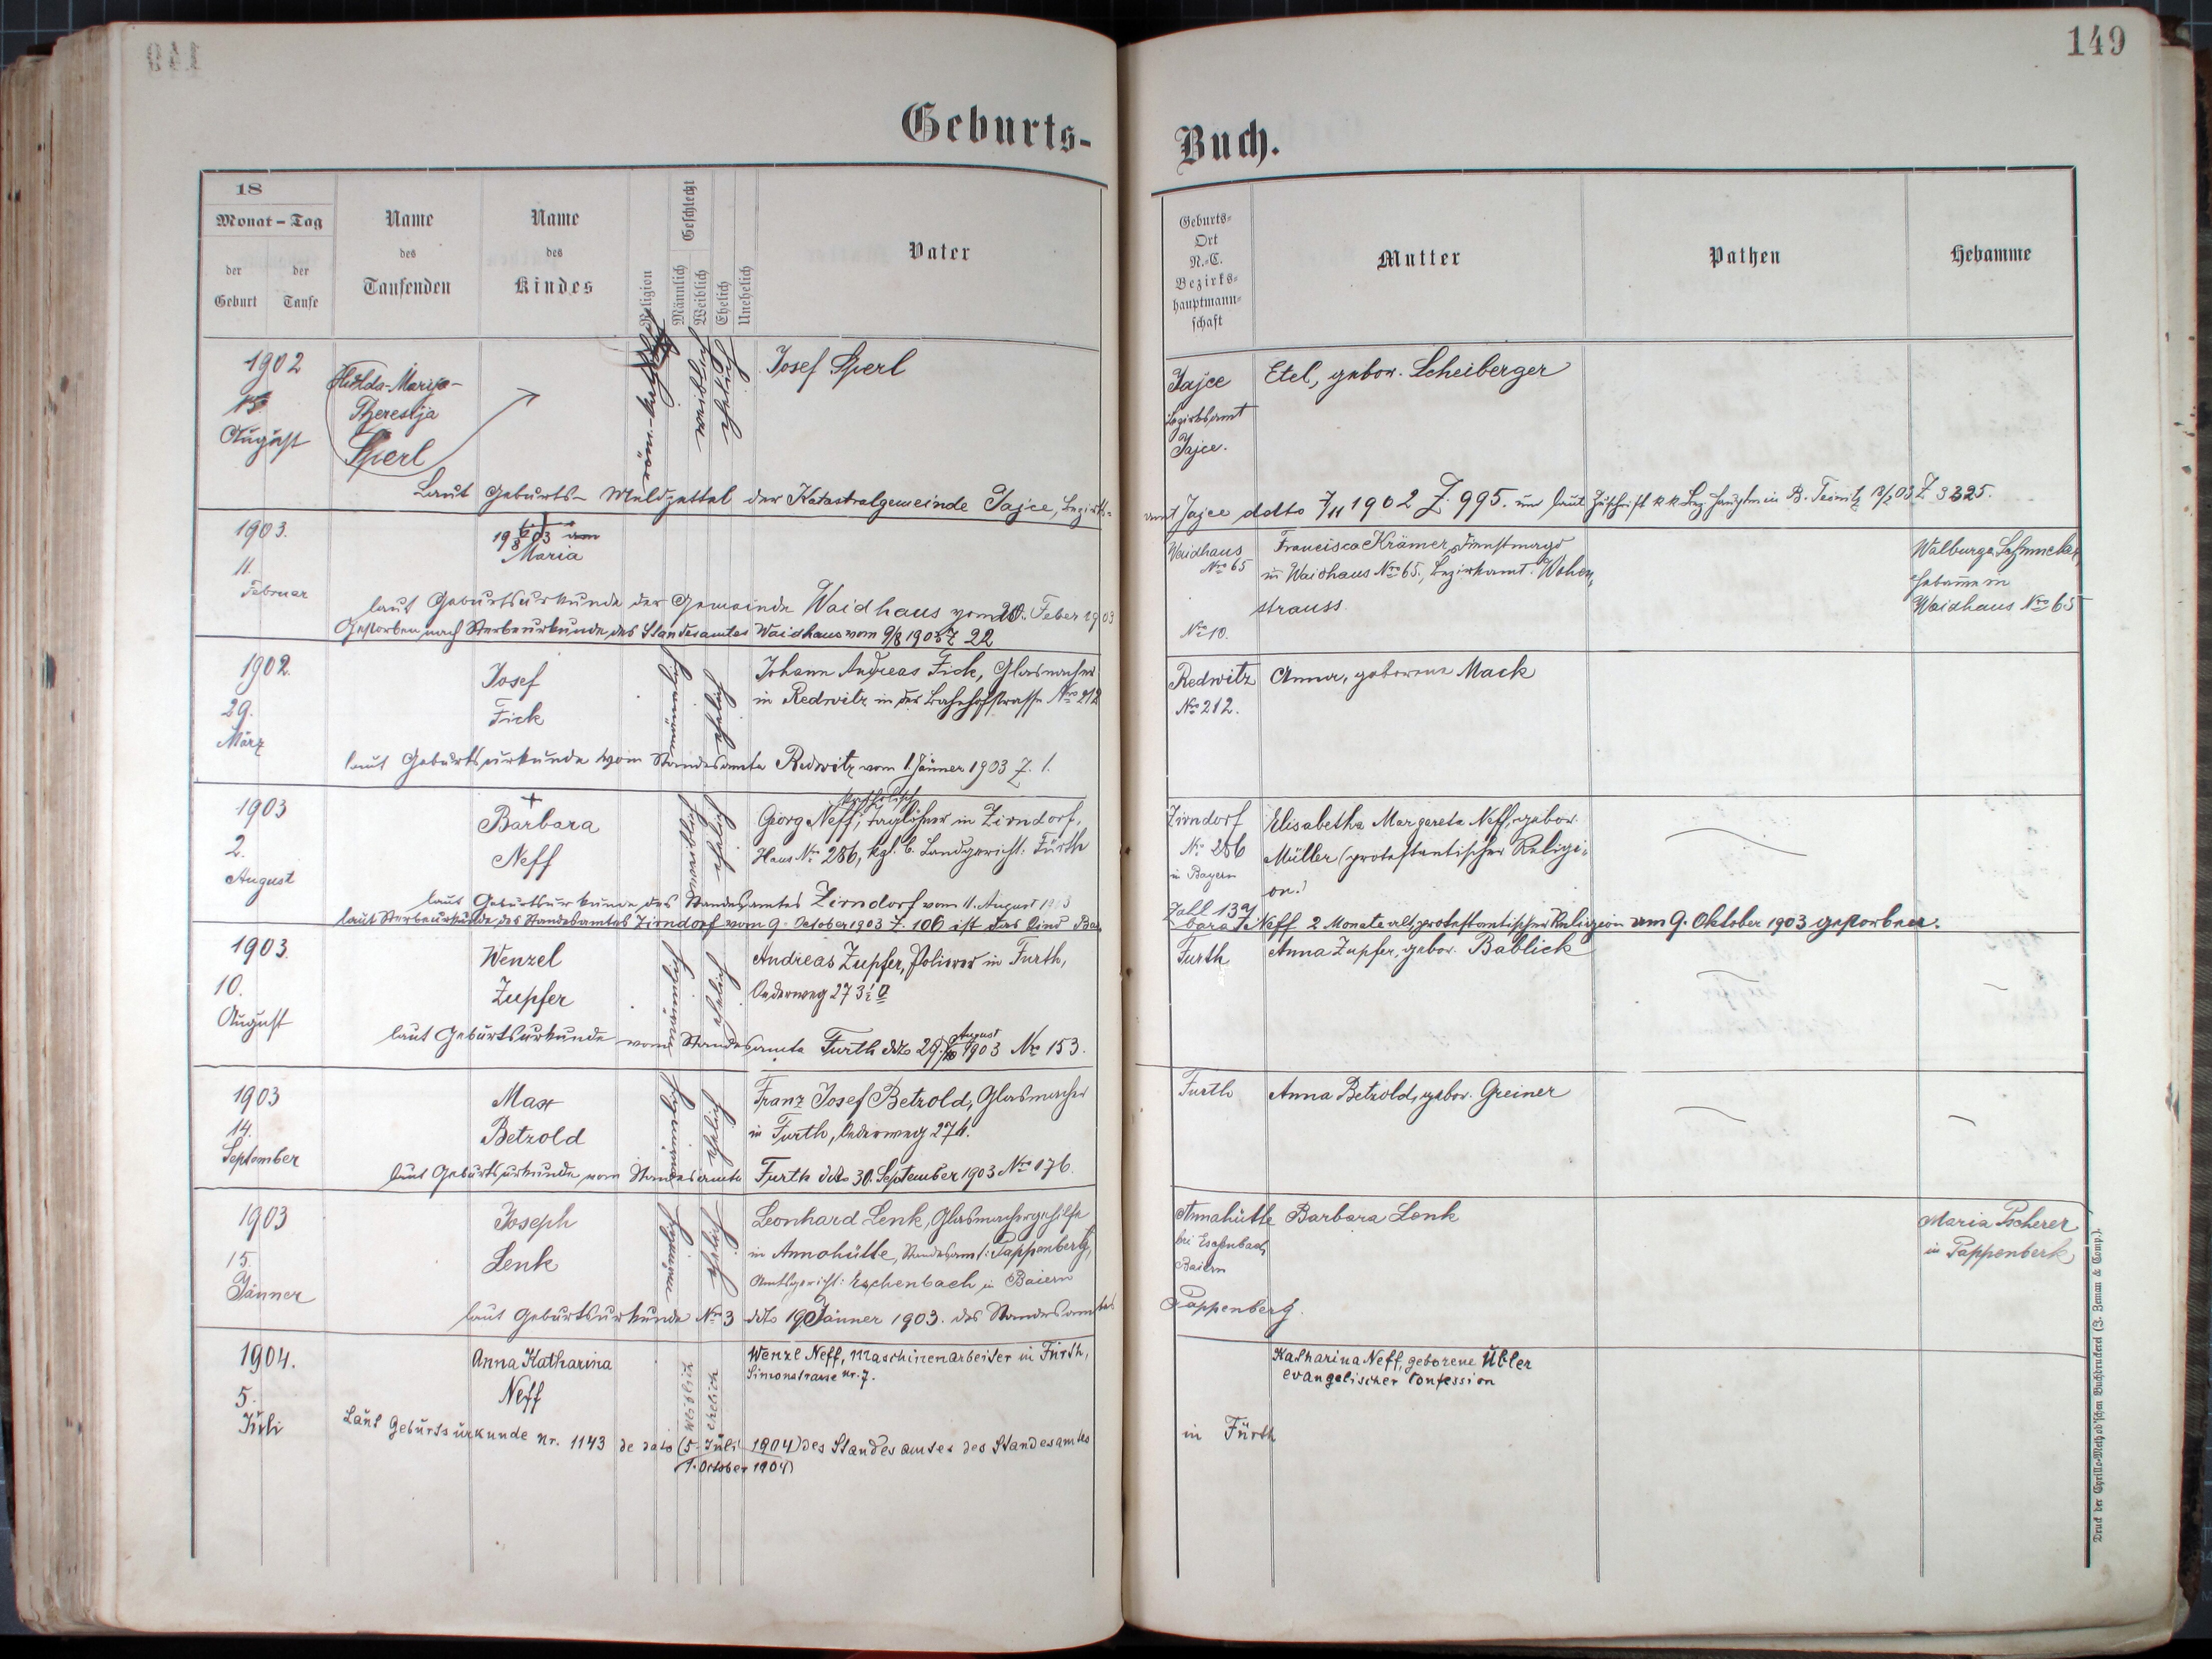 149
Geburts-
Buch.
18
Monat - Tag
der Geburt
der Taufe
Name des Taufenden
Name des Kindes
Religion
Geschlecht
Männlich
Weiblich
Ehelich
Unehelich
Vater
Geburts-
Ort
N.-C.
Bezirks-
hauptmann-
schaft
Mutter
Pathen
Hebamme
1902
15
August
Hulda-Marija-
Theresija
Sperl
röm.-kathol.
weiblich
ehelich
Josef Sperl
Jajce
Bezirksamt
Jajce.
Etel, gebor. Scheiberger
Laut Geburts-Meldzettel der Katastralgemeinde Jajce, Bezirks-
amt Jajce ddto 7/11 1902 Z. 995. und laut Zuschrift k k Bez. Hauptm in B. Teinitz Z 3325.
1903.
11.
Februar
Maria
Waidhaus
Nro 65
Francisca Krämer, Dienstmagd
in Waidhaus Nro 65., Bezirksamt. Vohen-
strauss.
Walburga
Hebamme in
Waidhaus Nro 65
laut Geburtsurkunde der Gemeinde Waidhaus vom 20. Feber 1903
No 10.
Gestorben nach Sterbeurkunde des Standesamtes Waidhaus vom 9/8 1903 Z 22
1902.
29.
März
Josef
Fick
ehelich
Johann Andreas Fick, Glasmacher
in Redwitz in der Bahnhofstrasse Nro 212
Redwitz
Nro 212.
Anna, geborene Mack
laut Geburtsurkunde vom Standesamte Redwitz vom 1. Jänner 1903 Z. 1.
1903
2.
August
Barbara
Neff
ehelich
katholisch
Georg Neff, Taglöhner in Zirndorf,
Haus Nro 286, kgl. b. Landgericht. Fürth
Zirndorf
No 286
in Bayern
Elisabetha Margareta Neff, gebor.
Müller (protestantischer Religi-
on.)
laut Geburtsurkunde des Standesamtes Zirndorf vom 11. August 1903
Zahl 139
laut Sterbeurkunde des Standesamtes Zirndorf vom 9. October 1903 Z. 106 ist das Kind Bar-
bara Neff 2 Monate alt, protestantischer Religion am 9. Oktober 1903 gestorben.
1903.
10.
August
Wenzel
Zupfer
ehelich
Andreas Zupfer, Polierer in Furth,
Furth
Anna Zupfer, gebor. Bablick
laut Geburtsurkunde vom Standesamte Furth ddto August 1903 Nro 153.
1903
14.
September
Max
Betzold
ehelich
Franz Josef Betzold, Glasmacher
in Furth, 274.
Furth
Anna Betzold, gebor. Greiner
laut Geburtsurkunde vom Standesamte Furth ddto 30. September 1903 Nro 176.
1903
15.
Jänner
Joseph
Lenk
ehelich
Leonhard Lenk, Glasmachergehilfe
in Annahütte, Standesamt: Pappenberg,
Amtsgericht: Eschenbach in Baiern
Annahütte
bei Eschenbach
Baiern
Barbara Lenk
Maria Pscherer
in Pappenberk
laut Geburtsurkunde Nro 3 ddto 19. Jänner 1903. des Standesamtes
Pappenberg.
1904.
5.
Juli
Anna Katharina
Neff
weiblich
ehelich
Wenzl Neff, Maschinenarbeiter in Fürth,
Simonstrasse Nr. 7.
Katharina Neff, geborene Übler
evangelischer Confession
Laut Geburtsurkunde Nr. 1143 de dato (5. Juli 1904) des Standesamtes des Standesamtes
in Fürth
(1. October 1904)
Druck der Cyrillo-Method'schen Buchdruckerei (J. Zeman & Comp.).